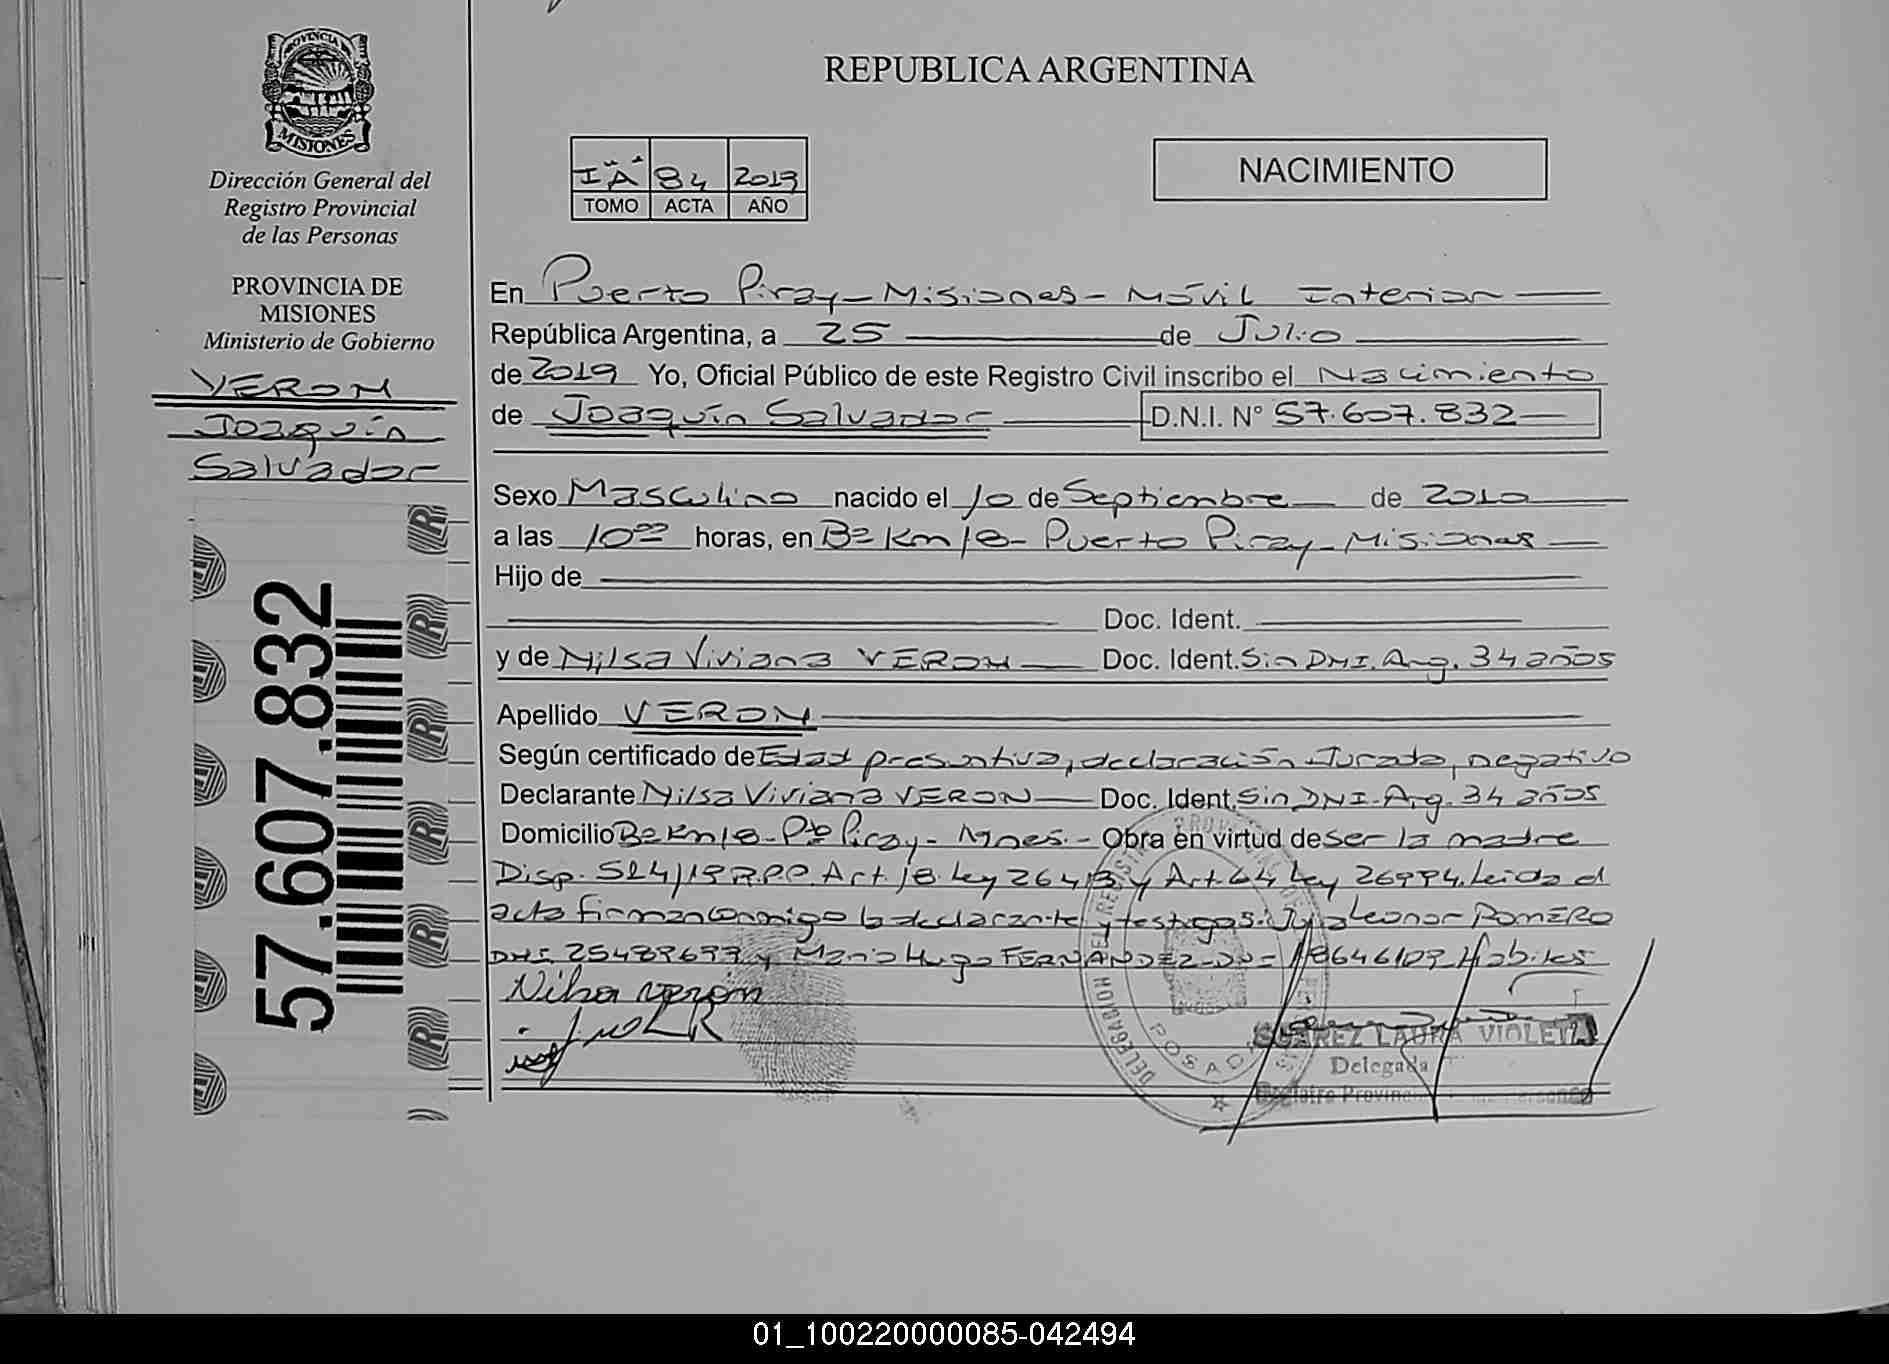 REPUBLICA ARGENTINA
PROVINCIA DE
MISIONES
Dirección General del
Registro Provincial
de las Personas
PROVINCIA DE
MISIONES
Ministerio de Gobierno
VERON
Joaquín
Salvador
57.607.832
IÄ 84 2019
TOMO ACTA AÑO
NACIMIENTO
En Puerto Piray - Misiones - Móvil Interior
República Argentina, a 25 de Julio
de 2019 Yo, Oficial Público de este Registro Civil inscribo el Nacimiento
de Joaquín Salvador D.N.I. N° 57.607.832
Sexo Masculino nacido el 10 de Septiembre de 2010
a las 10 horas, en Bº Km 18 - Puerto Piray - Misiones
Hijo de
Doc. Ident.
y de Nilsa Viviana VERON Doc. Ident. Sin DNI. Arg. 34 años
Apellido VERON
Según certificado de Edad presuntiva, declaración Jurada, negativo
Declarante Nilsa Viviana VERON Doc. Ident. Sin DNI. Arg. 34 años
Domicilio Bº Km 18 - Pto Piray - Mnes. - Obra en virtud de ser la madre
Disp. Art. 18 Ley 26413 y Art. 64 Ley 26994. Leida el
acta firman conmigo la declarante y testigos: Leonor ROMERO
DNI. y Mario Hugo FERNANDEZ DNI 18646109 Hábiles
Nilsa veron
SUAREZ LAURA VIOLETA
Delegada
Registro Provincial
DELEGACION DEL REGISTRO
POSADAS
01_100220000085-042494